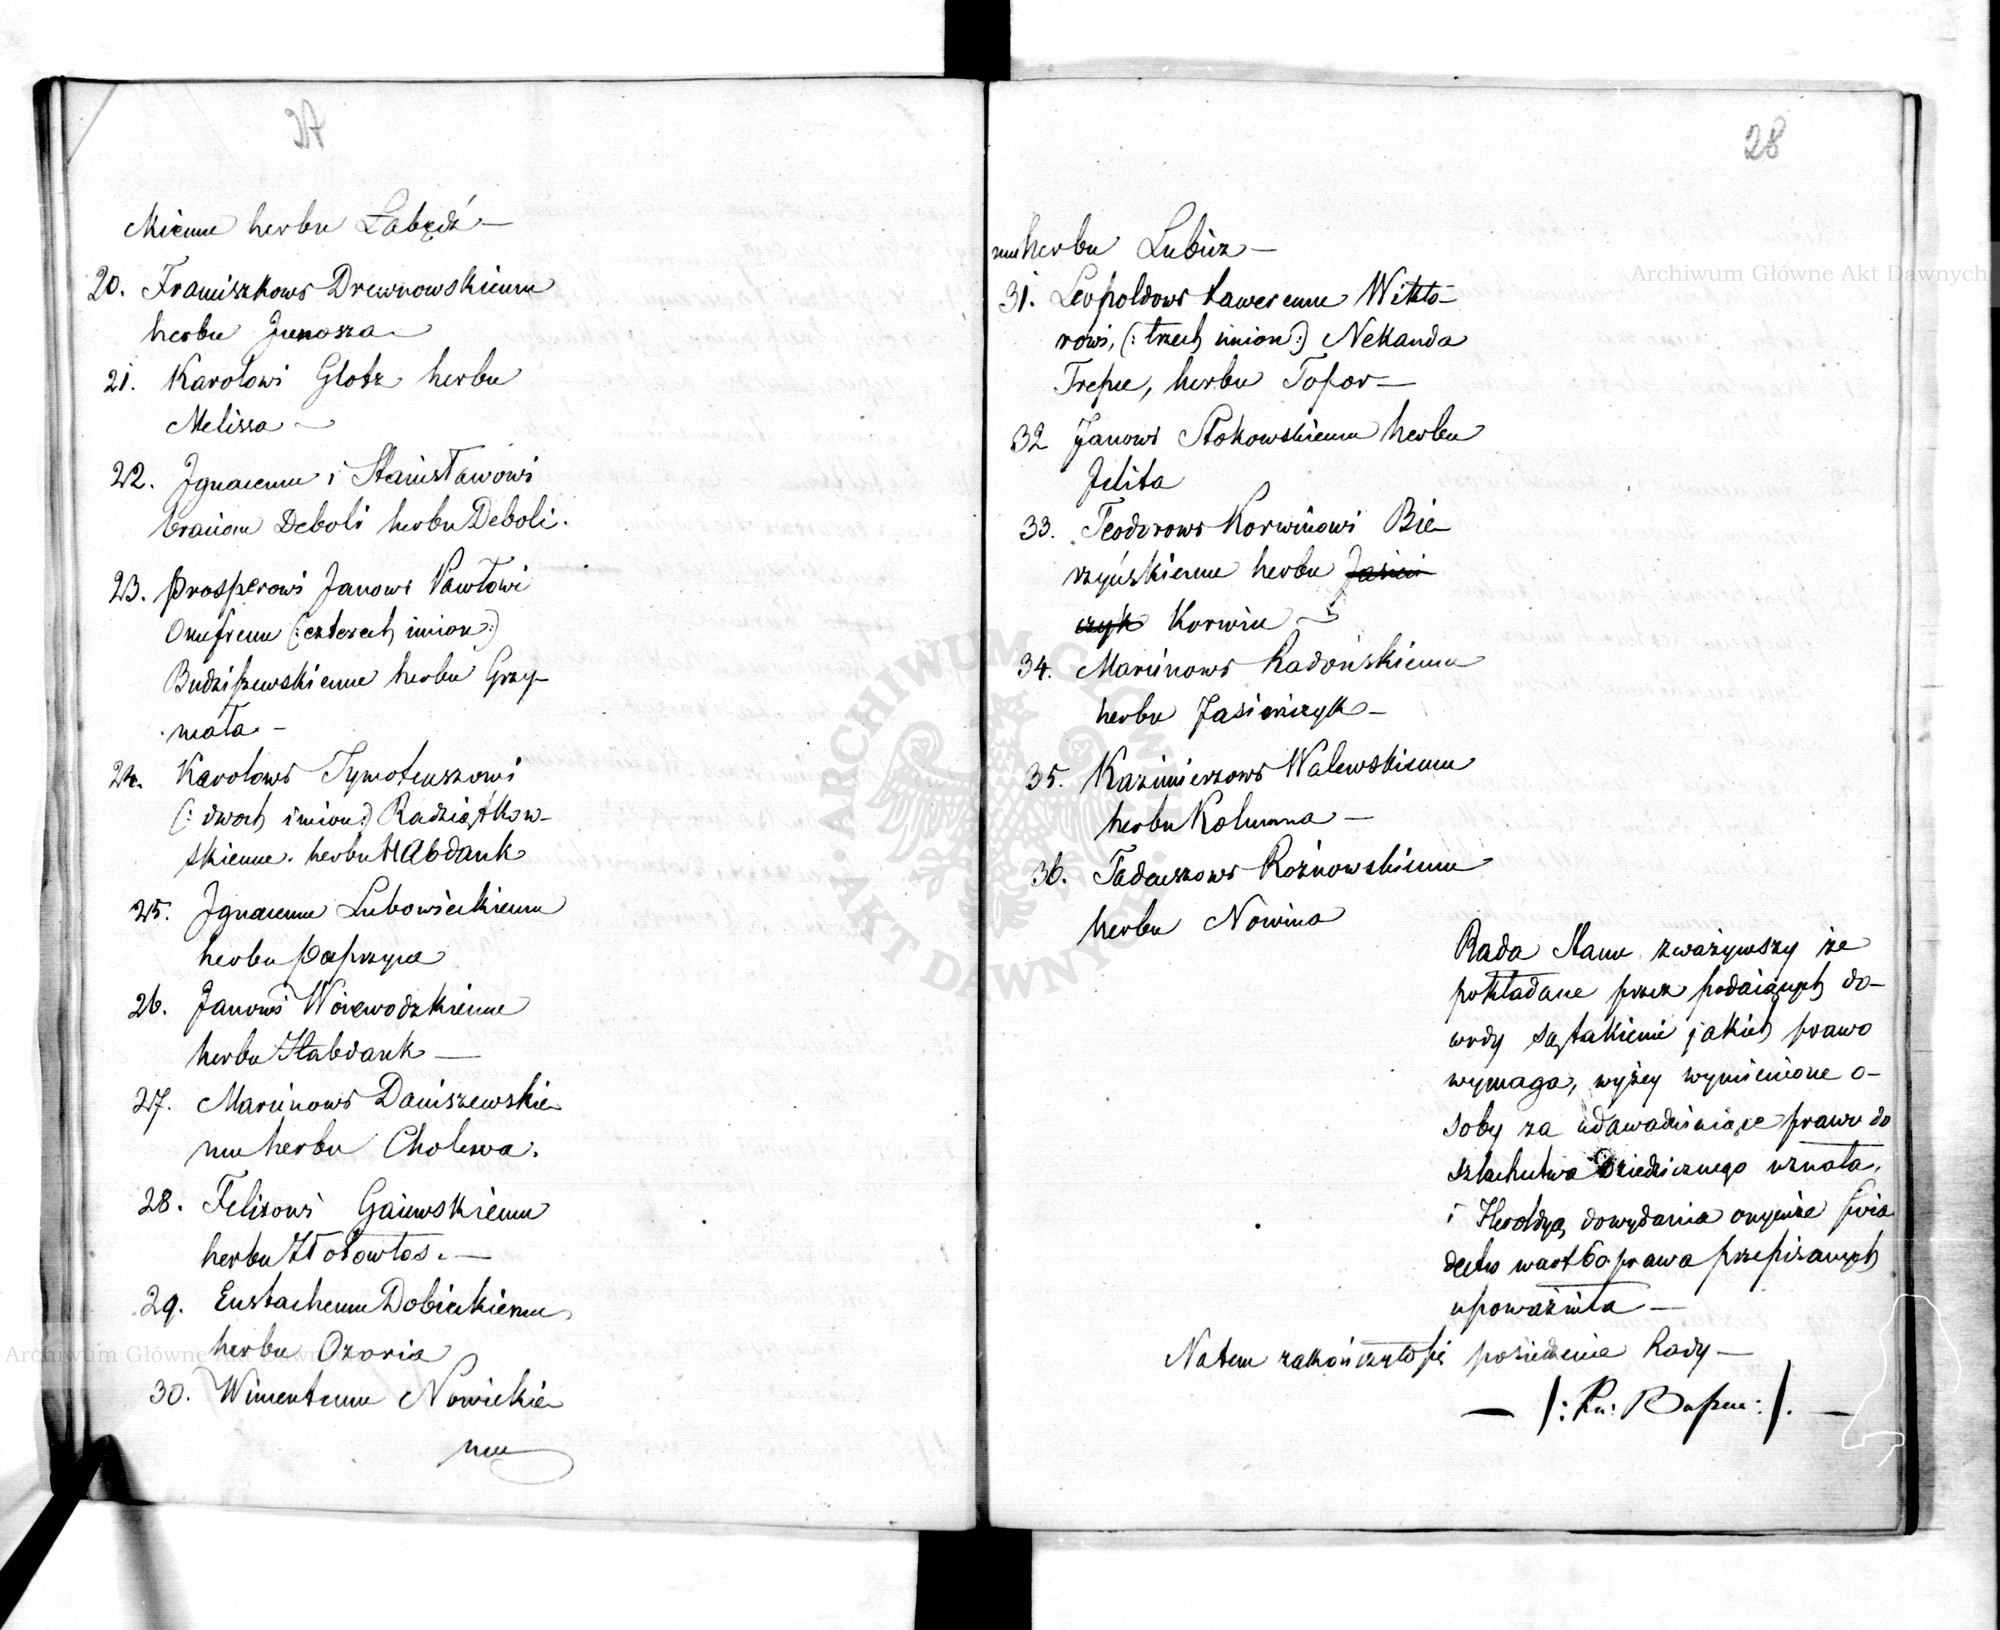 27
skiemu herbu Łabędź —
20. Franciszkowi Drewnowskiemu
herbu Junosza —
21. Karolowi Glotz herbu
Melissa —
22. Ignacemu i Stanisławowi
braciom Deboli herbu Deboli.
23. Prosperowi Janowi Pawłowi
Onufremu (: czterech imion :)
Budziszewskiemu herbu Grzy-
mała —
24. Karolowi Tymoteuszowi
(: dwoch imion :) Radziątkow-
skiemu. herbu Habdank
25. Ignacemu Lubowieckiemu
herbu Paprzyca
26. Janowi Woiewodzkiemu
herbu Habdank —
27. Marcinowi Daniszewskie-
mu herbu Cholewa.
28. Felixowi Gaiewskiemu
herbu Złotowłos. —
29. Eustachemu Dobieckiemu
herbu Ozoria
30. Wincentemu Nowickie
mu
28
mu herbu Lubicz —
31. Leopoldowi Xaweremu Wikto-
rowi, (: trzech imion :) Nekanda
Trepce, herbu Topor —
32 Janowi Stokowskiemu herbu
Jelita
33. Teodorowi Korwinowi Bie-
rzyńskiemu herbu Jasień
czyk Korwin —
34. Marcinowi Radońskiemu
herbu Jasieńczyk —
35. Kazimierzowi Walewskiemu
herbu Kolumna —
36. Tadeuszowi Rożnowskiemu
herbu Nowina
Rada Stanu zważywszy że
pokładane przez podaiących do-
wody są takiemi jakich prawo
wymaga, wyżey wymienione o-
soby za udawadniaiące prawo do
szlachectwa Dziedzicznego uznała,
i Heroldyą do wydania onymże świa
dectw w art 60 prawa przepisanych
upoważniła —
Na tem zakończyło się posiedzenie Rady —
— /: Ku: :/. —
Archiwum Główne Akt Dawnych
Archiwum Główne Akt Dawnych
ARCHIWUM GŁÓWNE AKT DAWNYCH